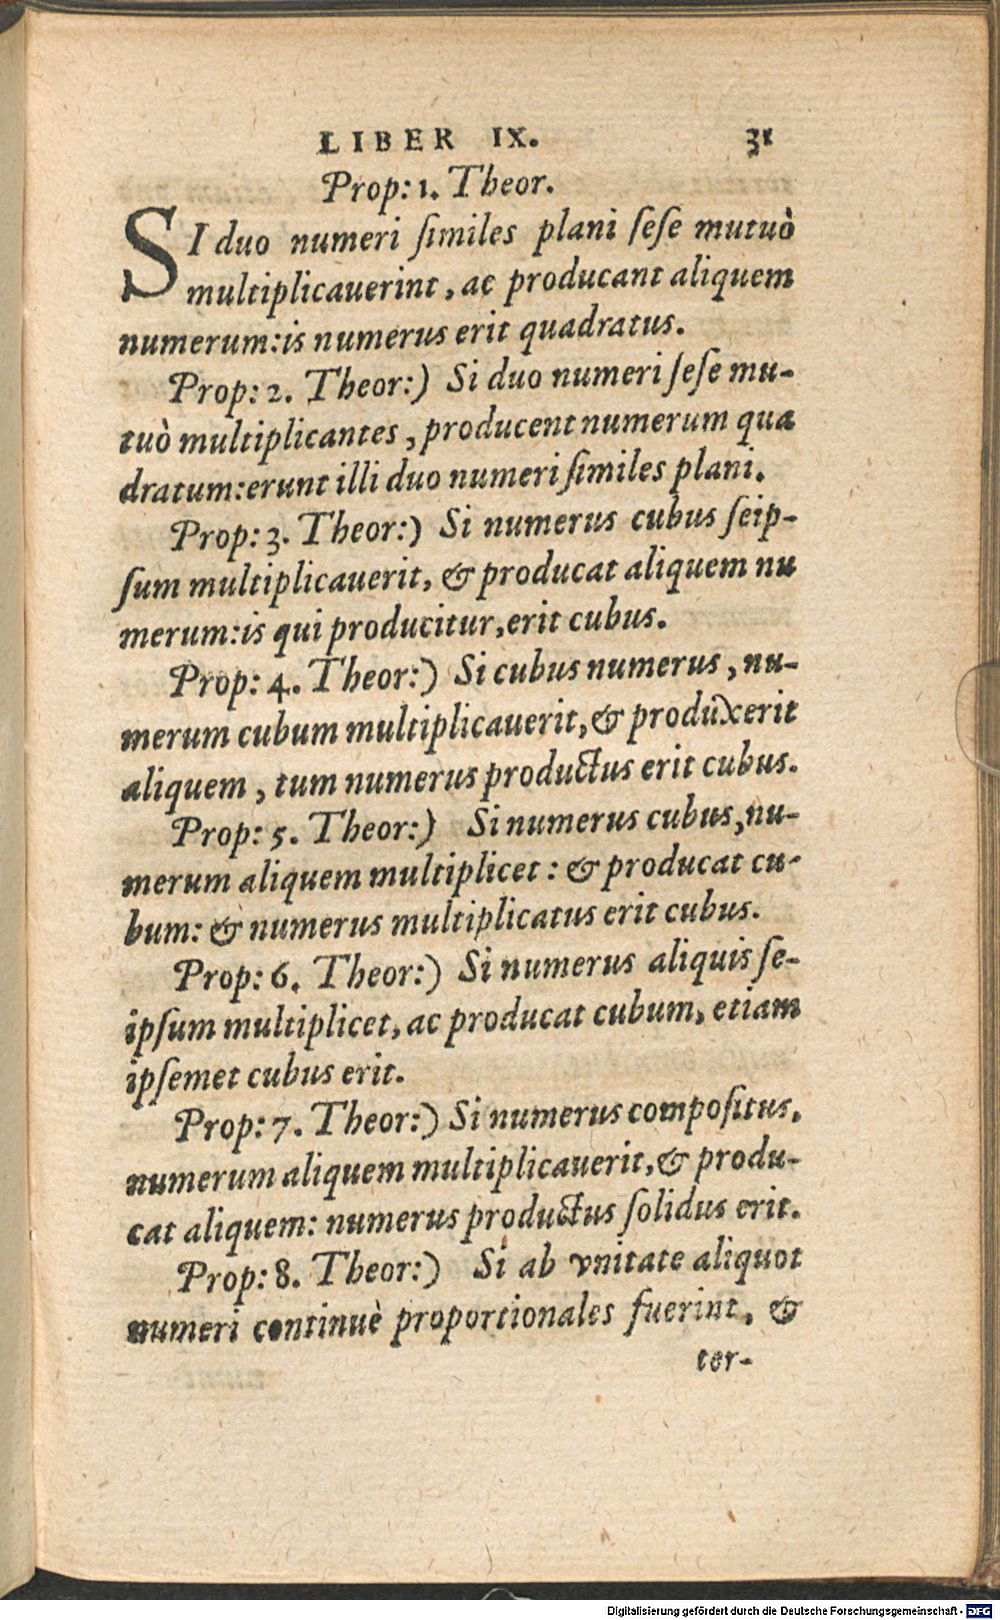 LIBER IX. 31
Prop: 1. Theor.
SI duo numeri ſimiles plani ſeſe mutuò
multiplicauerint, ac producant aliquem
numerum: is numerus erit quadratus.
Prop: 2. Theor:) Si duo numeri ſeſe mu-
tuò multiplicantes, producent numerum qua
dratum: erunt illi duo numeri ſimiles plani.
Prop: 3. Theor:) Si numerus cubus ſeip-
ſum multiplicauerit, & producat aliquem nu
merum: is qui producitur, erit cubus.
Prop: 4. Theor:) Si cubus numerus, nu-
merum cubum multiplicauerit, & produxerit
aliquem, tum numerus productus erit cubus.
Prop: 5. Theor:) Si numerus cubus, nu-
merum aliquem multiplicet: & producat cu-
bum: & numerus multiplicatus erit cubus.
Prop: 6. Theor:) Si numerus aliquis ſe-
ipſum multiplicet, ac producat cubum, etiam
ipſemet cubus erit.
Prop: 7. Theor:) Si numerus compoſitus,
numerum aliquem multiplicauerit, & produ-
cat aliquem: numerus productus ſolidus erit.
Prop: 8. Theor:) Si ab vnitate aliquot
numeri continuè proportionales fuerint, &
ter-
Digitalisierung gefördert durch die Deutsche Forschungsgemeinschaft - DFG